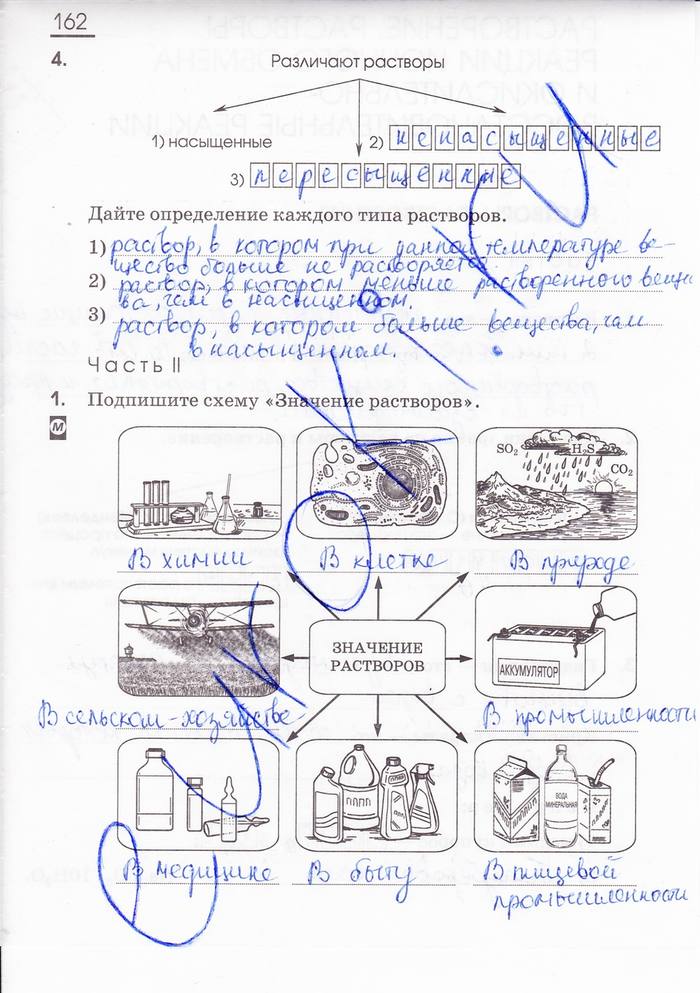 162
4. Различают растворы
1) насыщенные 2) ненасыщенные
3) пересыщенные
Дайте определение каждого типа растворов.
1) раствор, в котором при данной температуре ве-
щество больше не растворяется.
2) раствор, в котором меньше растворенного вещес
ва, чем в насыщенном.
3) раствор, в котором больше вещества, чем
в насыщенном.
Часть II
1. Подпишите схему «Значение растворов».
М
SO2 H2S
CO2
В химии В клетке В природе
ЗНАЧЕНИЕ
РАСТВОРОВ
АККУМУЛЯТОР
В сельском-хозяйстве- В промышленности
ВОДА
МИНЕРАЛЬНАЯ
В медицине В быту В пищевой
промышленности